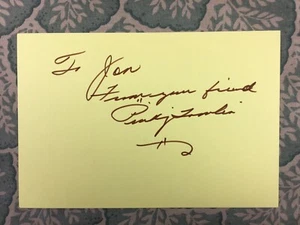 To Jon
From your friend
"Pinky Tomlin"